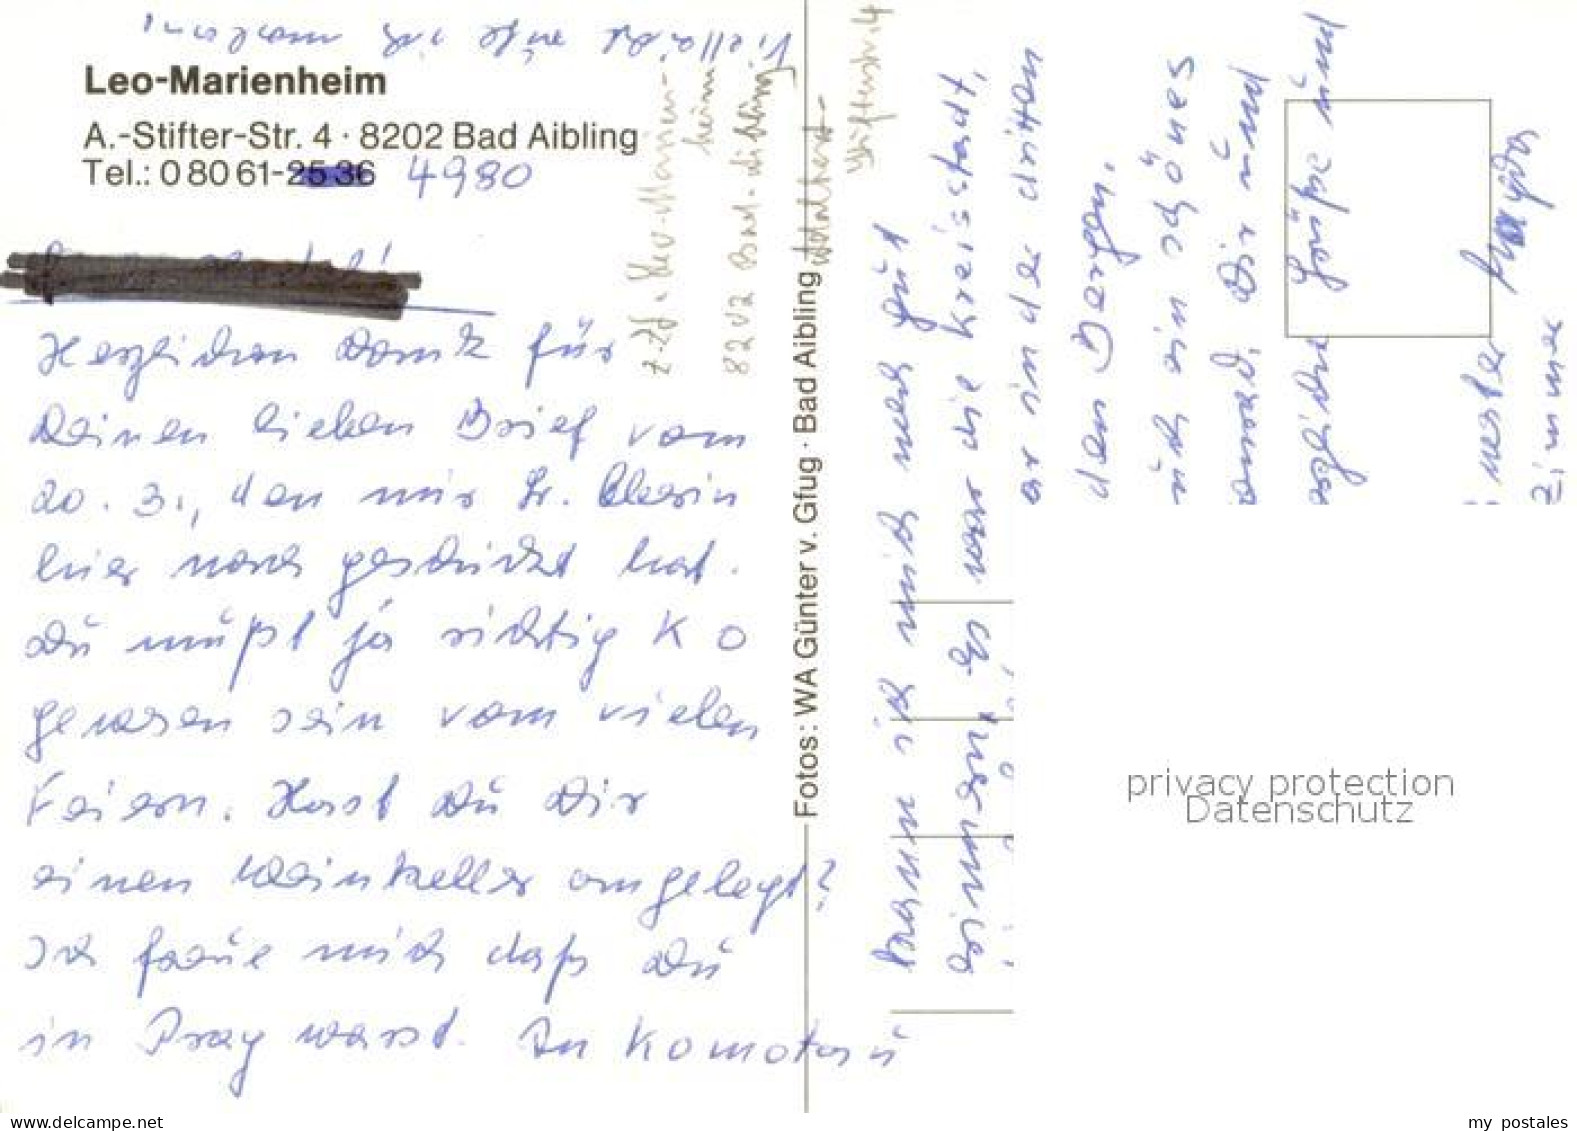 Leo-Marienheim
A.-Stifter-Str. 4 · 8202 Bad Aibling
Tel.: 0 80 61-2536 4980
Herzlichen Dank für
Deinen lieben Brief vom
20. 3., den mir Fr.
hier nach geschickt hat.
Du mußt ja richtig K O
gewesen sein vom vielen
Feiern. Hast Du Dir
einen Weinkeller angelegt?
Ich freue mich daß Du
in Prag warst. In Komotau
kann ich mich noch gut
erinnern, es war die Kreisstadt,
er in der dritten
den Bergen.
ich ein schönes
und, Dir und
Grüße und
Zimmer
z.Zt. Leo-Marien-
heim
8202 Bad-Aibling
Stifterstr. 4
Vielleicht
Fotos: WA Günter v. Gfug · Bad Aibling
privacy protection
Datenschutz
delcampe.net
my_postales